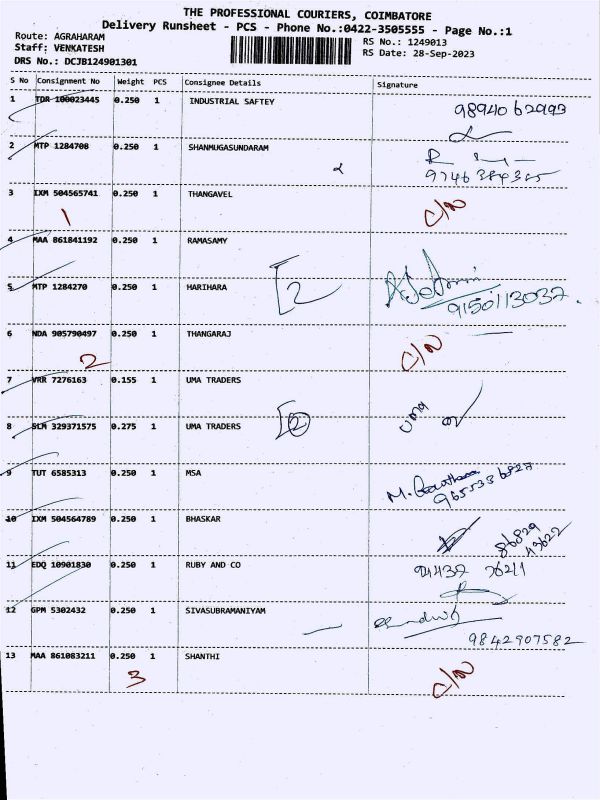 THE PROFESSIONAL COURIERS, COIMBATORE
Delivery Runsheet - PCS - Phone No.:0422-3505555 - Page No.:1
Route: AGRAHARAM
Staff: VENKATESH
DRS No.: DCJB124901301
RS No.: 1249013
RS Date: 28-Sep-2023
S No Consignment No Weight PCS Consignee Details Signature
1 TDR 100023445 0.250 1 INDUSTRIAL SAFTEY
9894062993
2 MTP 1284708 0.250 1 SHANMUGASUNDARAM
3 IXM 504565741 0.250 1 THANGAVEL
1 C/N
4 MAA 861841192 0.250 1 RAMASAMY
5 MTP 1284270 0.250 1 HARIHARA
2
9150113032
6 NDA 905790497 0.250 1 THANGARAJ
2 C/N
7 VRR 7276163 0.155 1 UMA TRADERS
8 SLM 329371575 0.275 1 UMA TRADERS
2 UMA
9 TUT 6585313 0.250 1 MSA
10 IXM 504564789 0.250 1 BHASKAR
11 EDQ 10901830 0.250 1 RUBY AND CO
94437 76211
12 GPM 5302432 0.250 1 SIVASUBRAMANIYAM
9842907582
13 MAA 861083211 0.250 1 SHANTHI
3 C/N